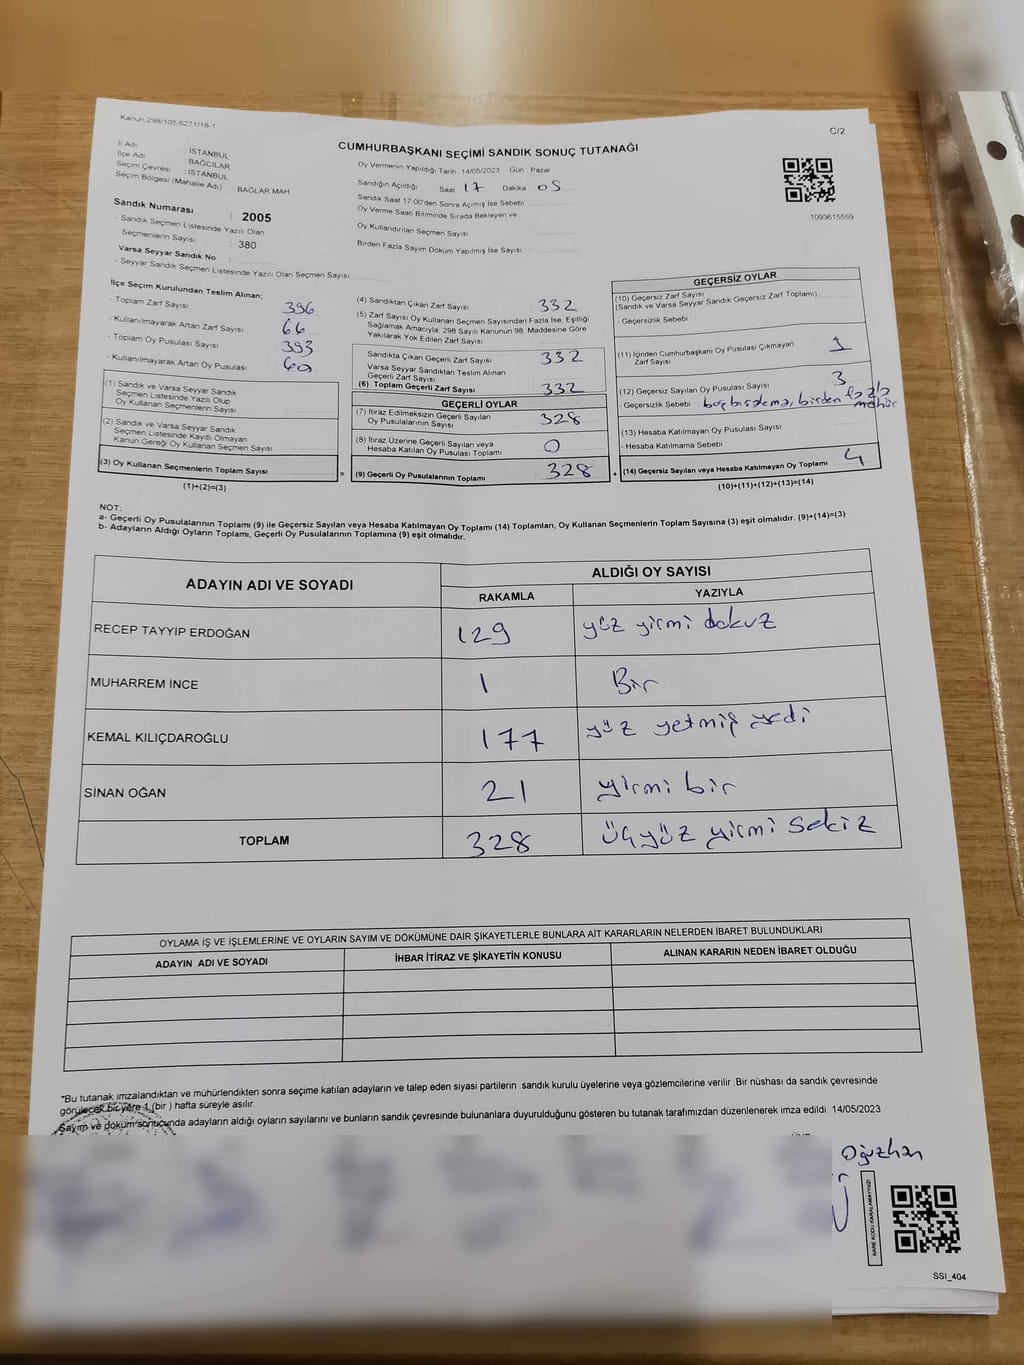 Kanun:298/105,6271/18-1
C/2
CUMHURBAŞKANI SEÇİMİ SANDIK SONUÇ TUTANAĞI
İl Adı : İSTANBUL
İlçe Adı : BAĞCILAR
Seçim Çevresi : İSTANBUL
Seçim Bölgesi (Mahalle Adı) BAĞLAR MAH
Sandık Numarası : 2005
- Sandık Seçmen Listesinde Yazılı Olan
Seçmenlerin Sayısı : 380
Varsa Seyyar Sandık No :
- Seyyar Sandık Seçmen Listesinde Yazılı Olan Seçmen Sayısı
Oy Vermenin Yapıldığı Tarih : 14/05/2023 Gün : Pazar
Sandığın Açıldığı Saat 17 Dakika 05
Sandık Saat 17.00'den Sonra Açmış İse Sebebi
Oy Verme Saati Bitiminde Sırada Bekleyen ve
Oy Kullandırılan Seçmen Sayısı
Birden Fazla Sayım Döküm Yapılmış İse Sayısı
1093615559
İlçe Seçim Kurulundan Teslim Alınan;
- Toplam Zarf Sayısı 396
- Kullanılmayarak Artan Zarf Sayısı 66
- Toplam Oy Pusulası Sayısı 393
- Kullanılmayarak Artan Oy Pusulası 60
(1) Sandık ve Varsa Seyyar Sandık
Seçmen Listesinde Yazılı Olup
Oy Kullanan Seçmenlerin Sayısı
(2) Sandık ve Varsa Seyyar Sandık
Seçmen Listesinde Kayıtlı Olmayan
Kanun Gereği Oy Kullanan Seçmen Sayısı
(3) Oy Kullanan Seçmenlerin Toplam Sayısı
(1)+(2)=(3)
(4) Sandıktan Çıkan Zarf Sayısı 332
(5) Zarf Sayısı Oy Kullanan Seçmen Sayısından Fazla İse, Eşitliği
Sağlamak Amacıyla, 298 Sayılı Kanunun 98. Maddesine Göre
Yakılarak Yok Edilen Zarf Sayısı
Sandıkta Çıkan Geçerli Zarf Sayısı 332
Varsa Seyyar Sandıktan Teslim Alınan
Geçerli Zarf Sayısı
(6) Toplam Geçerli Zarf Sayısı 332
GEÇERLİ OYLAR
(7) İtiraz Edilmeksizin Geçerli Sayılan
Oy Pusulalarının Sayısı 328
(8) İtiraz Üzerine Geçerli Sayılan veya
Hesaba Katılan Oy Pusulası Toplamı 0
= (9) Geçerli Oy Pusulalarının Toplamı 328
GEÇERSİZ OYLAR
(10) Geçersiz Zarf Sayısı
(Sandık ve Varsa Seyyar Sandık Geçersiz Zarf Toplamı)
- Geçersizlik Sebebi
(11) İçinden Cumhurbaşkanı Oy Pusulası Çıkmayan
Zarf Sayısı 1
(12) Geçersiz Sayılan Oy Pusulası Sayısı 3
- Geçersizlik Sebebi birden fazla
mühür
(13) Hesaba Katılmayan Oy Pusulası Sayısı
- Hesaba Katılmama Sebebi
+ (14) Geçersiz Sayılan veya Hesaba Katılmayan Oy Toplamı 4
(10)+(11)+(12)+(13)=(14)
NOT:
a- Geçerli Oy Pusulalarının Toplamı (9) ile Geçersiz Sayılan veya Hesaba Katılmayan Oy Toplamı (14) Toplamları, Oy Kullanan Seçmenlerin Toplam Sayısına (3) eşit olmalıdır. (9)+(14)=(3)
b- Adayların Aldığı Oyların Toplamı, Geçerli Oy Pusulalarının Toplamına (9) eşit olmalıdır.
ADAYIN ADI VE SOYADI ALDIĞI OY SAYISI
RAKAMLA YAZIYLA
RECEP TAYYİP ERDOĞAN 129 yüz yirmi dokuz
MUHARREM İNCE 1 Bir
KEMAL KILIÇDAROĞLU 177 yüz yetmiş yedi
SİNAN OĞAN 21 yirmi bir
TOPLAM 328 üçyüz yirmi sekiz
OYLAMA İŞ VE İŞLEMLERİNE VE OYLARIN SAYIM VE DÖKÜMÜNE DAİR ŞİKAYETLERLE BUNLARA AİT KARARLARIN NELERDEN İBARET BULUNDUKLARI
ADAYIN ADI VE SOYADI İHBAR İTİRAZ VE ŞİKAYETİN KONUSU ALINAN KARARIN NEDEN İBARET OLDUĞU
*Bu tutanak imzalandıktan ve mühürlendikten sonra seçime katılan adayların ve talep eden siyasi partilerin sandık kurulu üyelerine veya gözlemcilerine verilir .Bir nüshası da sandık çevresinde
görülecek bir yere 1 (bir ) hafta süreyle asılır.
Sayım ve döküm sonucunda adayların aldığı oyların sayılarını ve bunların sandık çevresinde bulunanlara duyurulduğunu gösteren bu tutanak tarafımızdan düzenlenerek imza edildi. 14/05/2023
Oğuzhan
KARE KODU KARALAMAYINIZ!
SSI_404